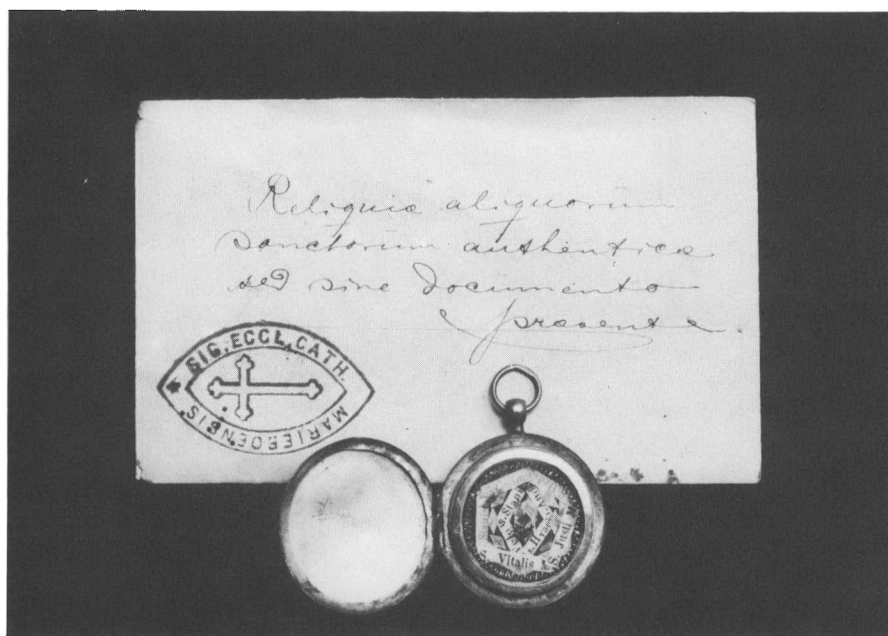 Reliquiæ aliquorum
sanctorum authenticæ
sed sine documento
præsente.
* SIG. ECCL. CATH.
MARIEROENSIS
S. Stanl
S. Hyac
S. Vitalis
S. Justi M